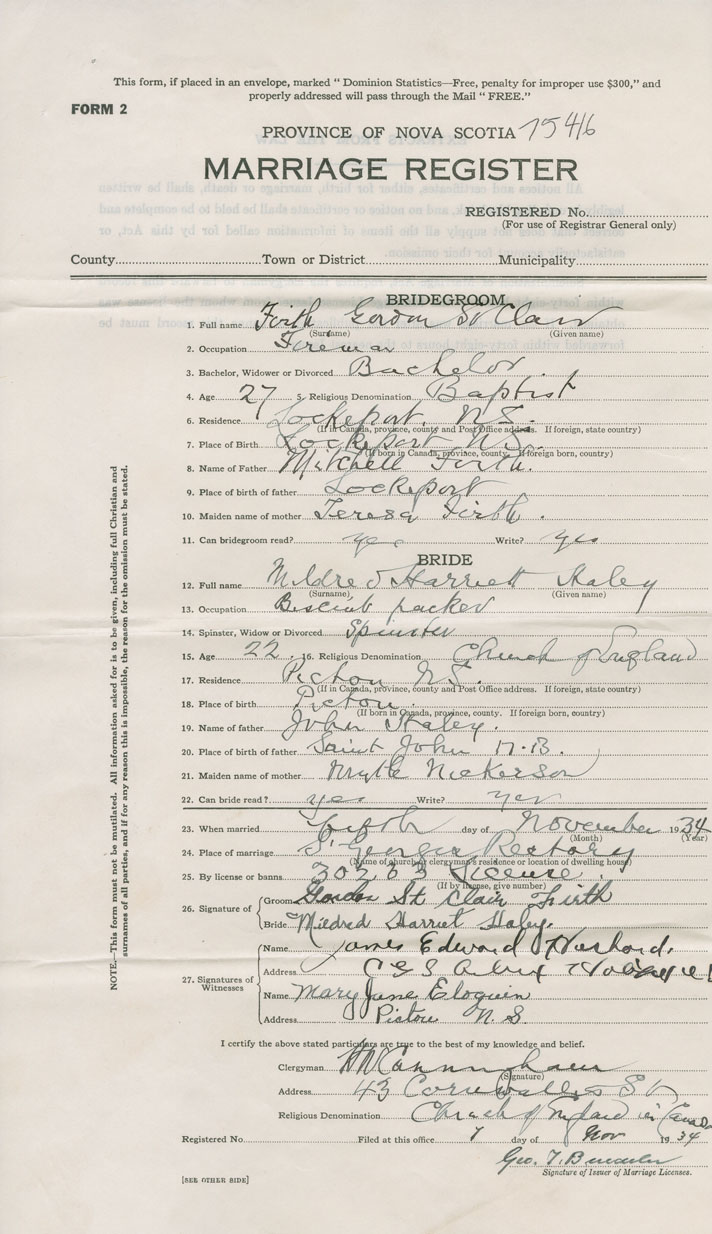 This form, if placed in an envelope, marked “ Dominion Statistics—Free, penalty for improper use $300,” and
properly addressed will pass through the Mail “ FREE.”
FORM 2
PROVINCE OF NOVA SCOTIA 7546
MARRIAGE REGISTER
REGISTERED No.
(For use of Registrar General only)
County Town or District Municipality
BRIDEGROOM
1. Full name Firth Gordon St Clair
(Surname) (Given name)
2. Occupation Fireman
3. Bachelor, Widower or Divorced Bachelor
4. Age 27 5. Religious Denomination Baptist
6. Residence Lockeport. N.S.
(If in Canada, province, county and Post Office address. If foreign, state country)
7. Place of Birth Lockeport N.S.
(If born in Canada, province, county. If foreign born, country)
8. Name of Father Mitchell Firth.
9. Place of birth of father Lockeport
10. Maiden name of mother Teresa Firth.
11. Can bridegroom read? yes Write? yes
BRIDE
12. Full name Mildred Harriett Haley
(Surname) (Given name)
13. Occupation Biscuit packer
14. Spinster, Widow or Divorced Spinster
15. Age 22. 16. Religious Denomination Church of England
17. Residence Pictou N.S.
(If in Canada, province, county and Post Office address. If foreign, state country)
18. Place of birth Pictou.
(If born in Canada, province, county. If foreign born, country)
19. Name of father John Haley.
20. Place of birth of father Saint John N.B.
21. Maiden name of mother Mrytle Nickerson
22. Can bride read? yes Write? yes
23. When married fifth day of November 1934
(Month) (Year)
24. Place of marriage St Georges Rectory
(Name of church or clergyman's residence or location of dwelling house)
25. By license or banns 30263 License.
(If by license, give number)
26. Signature of Groom Gordon St Clair Firth
Bride Mildred Harriet Haley.
27. Signatures of Witnesses
Name James Edward
Address C G S
Name Mary Jane Eloquin
Address Pictou N.S.
I certify the above stated particulars are true to the best of my knowledge and belief.
Clergyman H W Cunningham
(Signature)
Address 43 Cornwallis St
Religious Denomination Church of England in Canada
Registered No. Filed at this office 7 day of Nov 1934
Geo. T.
Signature of Issuer of Marriage Licenses.
[SEE OTHER SIDE]
NOTE.—This form must not be mutilated. All information asked for is to be given, including full Christian and
surnames of all parties, and if for any reason this is impossible, the reason for the omission must be stated.